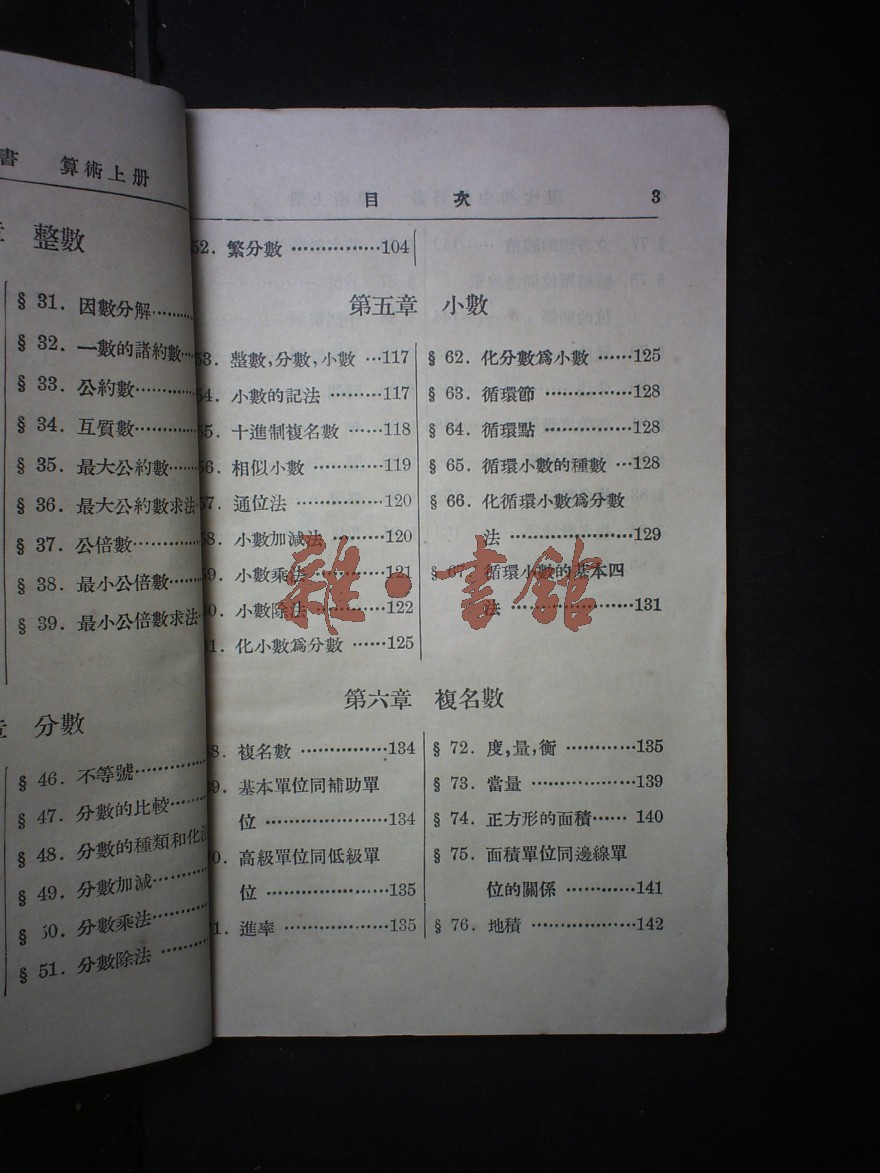 書 算術上册
整數
§ 31. 因數分解………
§ 32. 一數的諸約數…
§ 33. 公約數…………
§ 34. 互質數…………
§ 35. 最大公約數……
§ 36. 最大公約數求法
§ 37. 公倍數…………
§ 38. 最小公倍數……
§ 39. 最小公倍數求法
分數
§ 46. 不等號…………
§ 47. 分數的比較……
§ 48. 分數的種類和化法
§ 49. 分數加減………
§ 50. 分數乘法………
§ 51. 分數除法………
目 次 3
52. 繁分數 ……………104
第五章 小數
53. 整數,分數,小數 …117
54. 小數的記法 ………117
55. 十進制複名數 ……118
56. 相似小數 …………119
57. 通位法 ……………120
58. 小數加減法 ………120
59. 小數乘法 …………121
60. 小數除法 …………122
61. 化小數爲分數 ……125
§ 62. 化分數爲小數 ……125
§ 63. 循環節 ……………128
§ 64. 循環點 ……………128
§ 65. 循環小數的種數 …128
§ 66. 化循環小數爲分數
法 …………………129
§ 67. 循環小數的基本四
法 …………………131
第六章 複名數
68. 複名數 ……………134
69. 基本單位同補助單
位 …………………134
70. 高級單位同低級單
位 …………………135
71. 進率 ………………135
§ 72. 度,量,衡 …………135
§ 73. 當量 ………………139
§ 74. 正方形的面積…… 140
§ 75. 面積單位同邊線單
位的關係 …………141
§ 76. 地積 ………………142
雜·書館